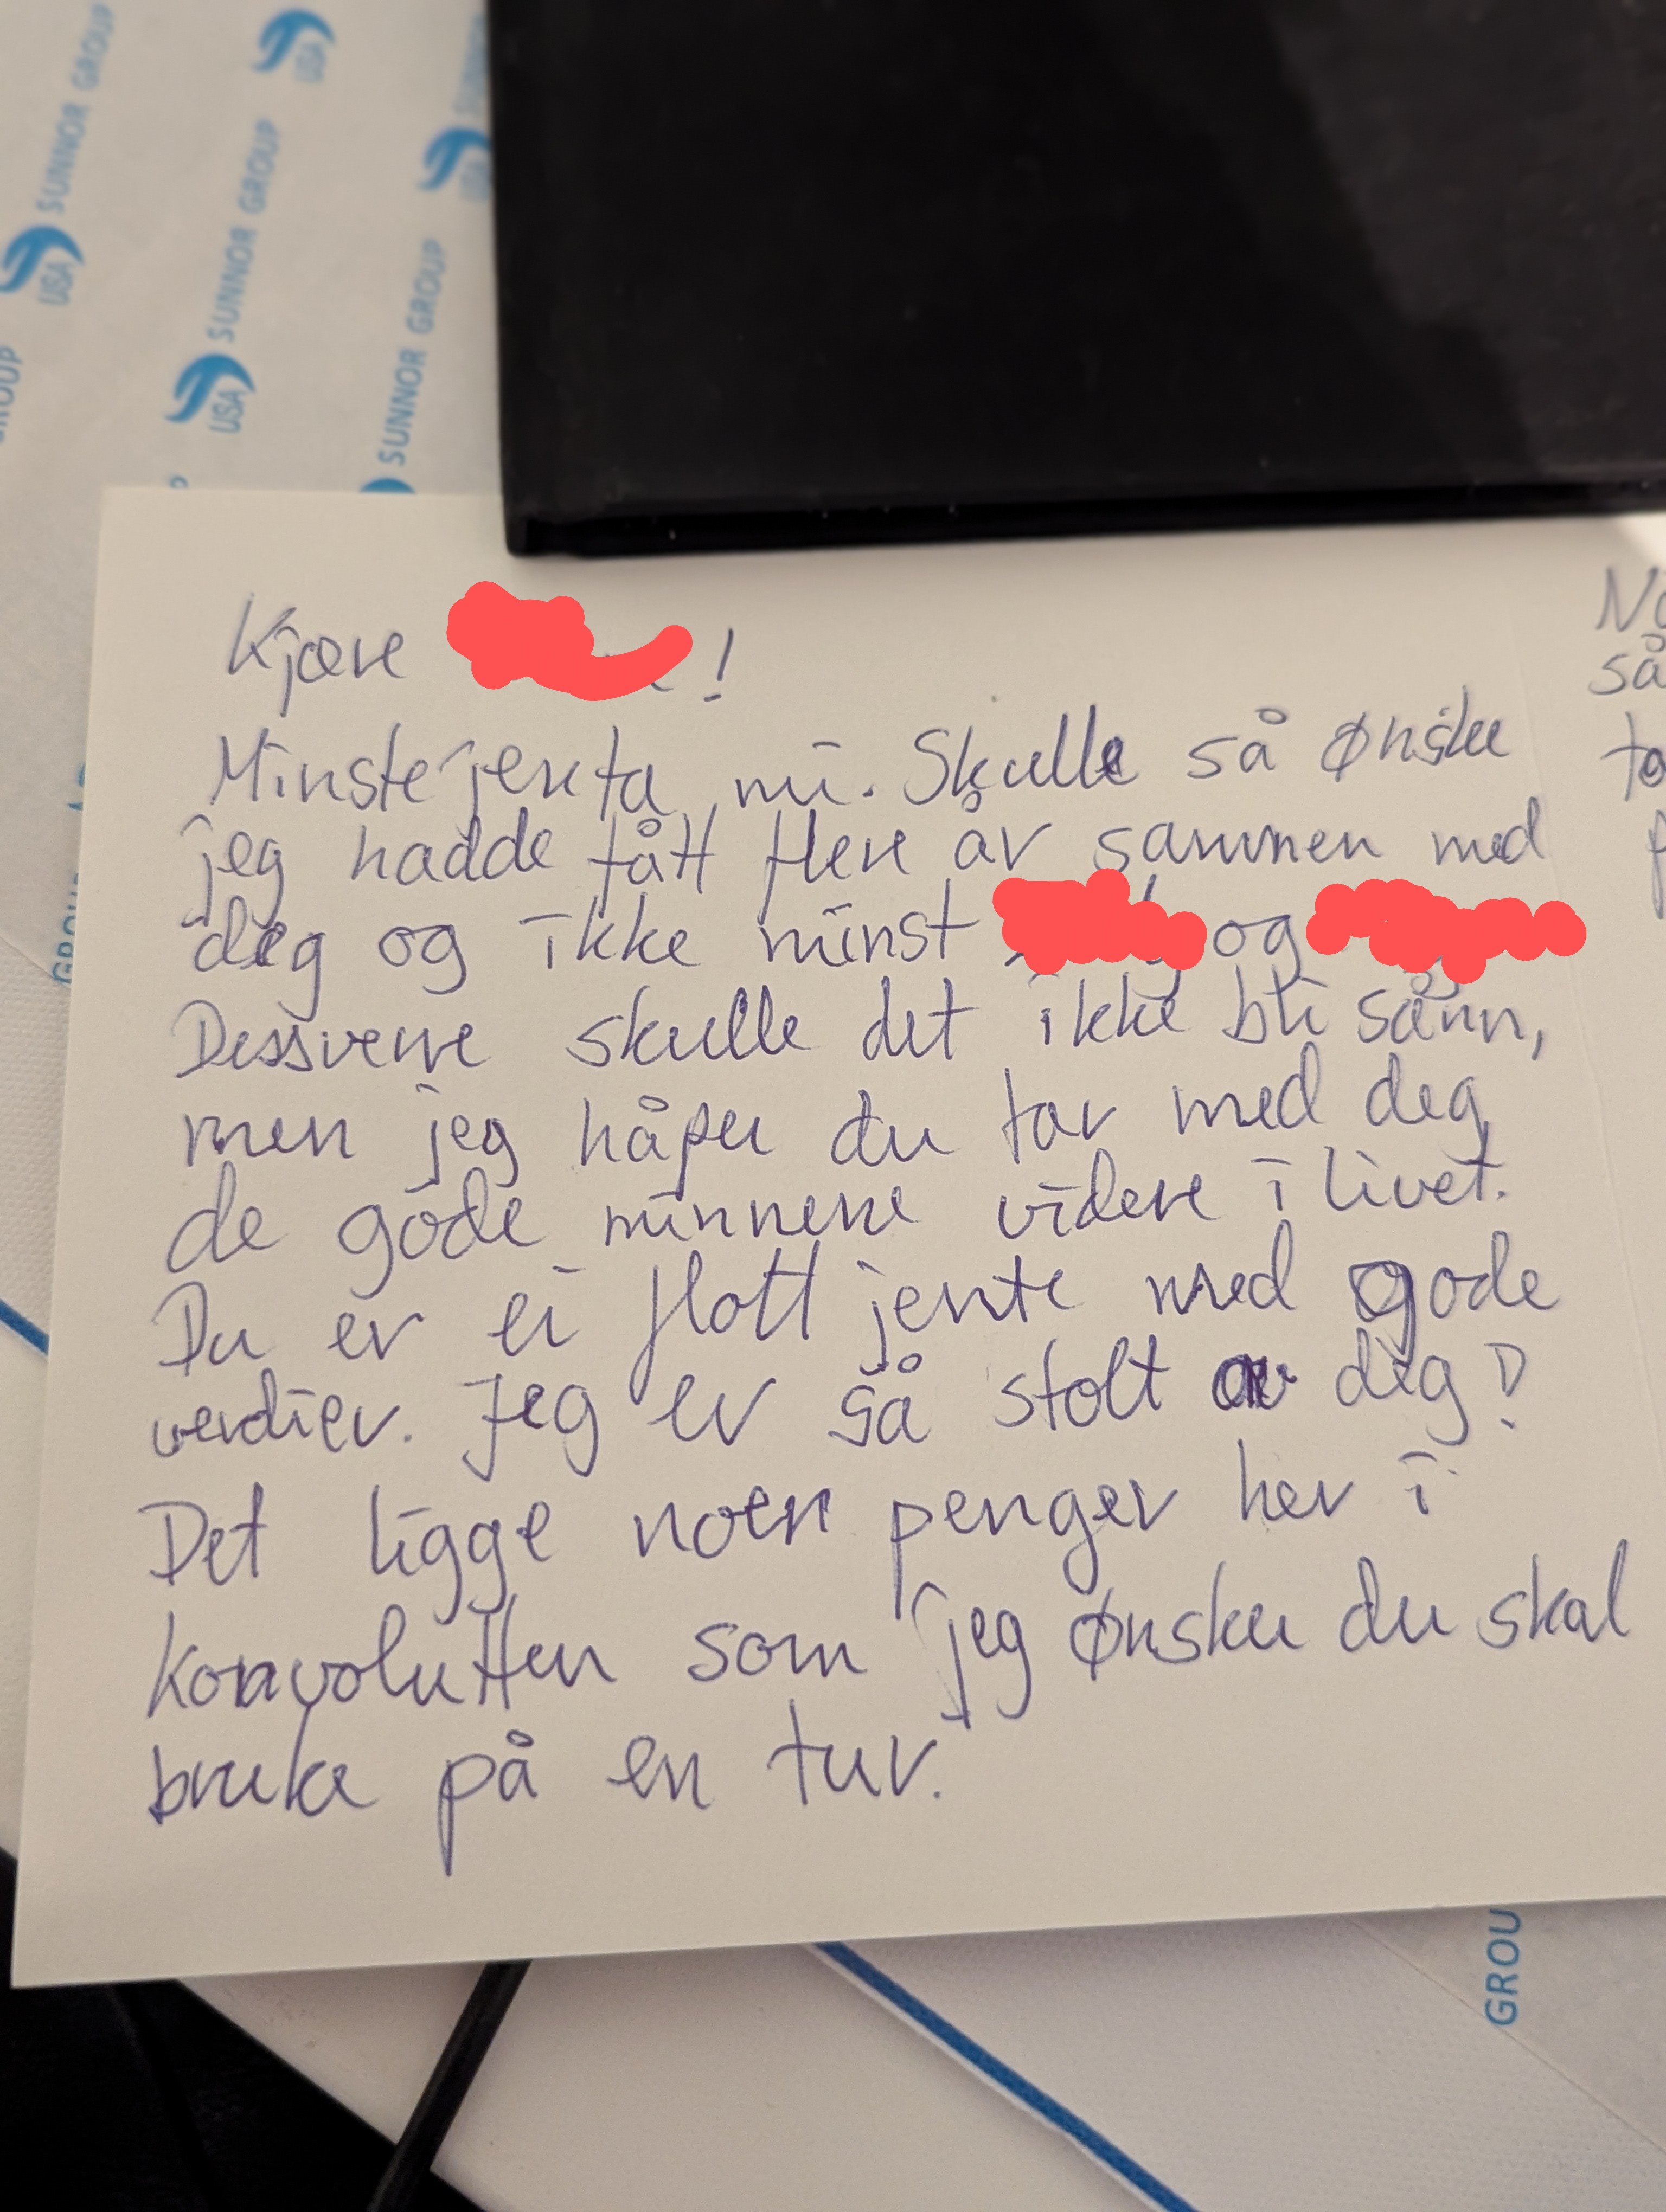 SUNNOR GROUP
USA
SUNNOR GROUP
USA
SUNNOR GROUP
USA
USA
SUNNOR GROUP
Kjære !
Minstejenta mi. Skulle så ønske
jeg hadde fått flere år sammen med
deg og ikke minst og
Dessverre skulle det ikke bli sånn,
men jeg håper du tar med deg
de gode minnene videre i livet.
Du er ei flott jente med gode
verdier. Jeg er så stolt av deg!
Det ligge noen penger her i
konvolutten som jeg ønsker du skal
bruke på en tur.
så
GROU